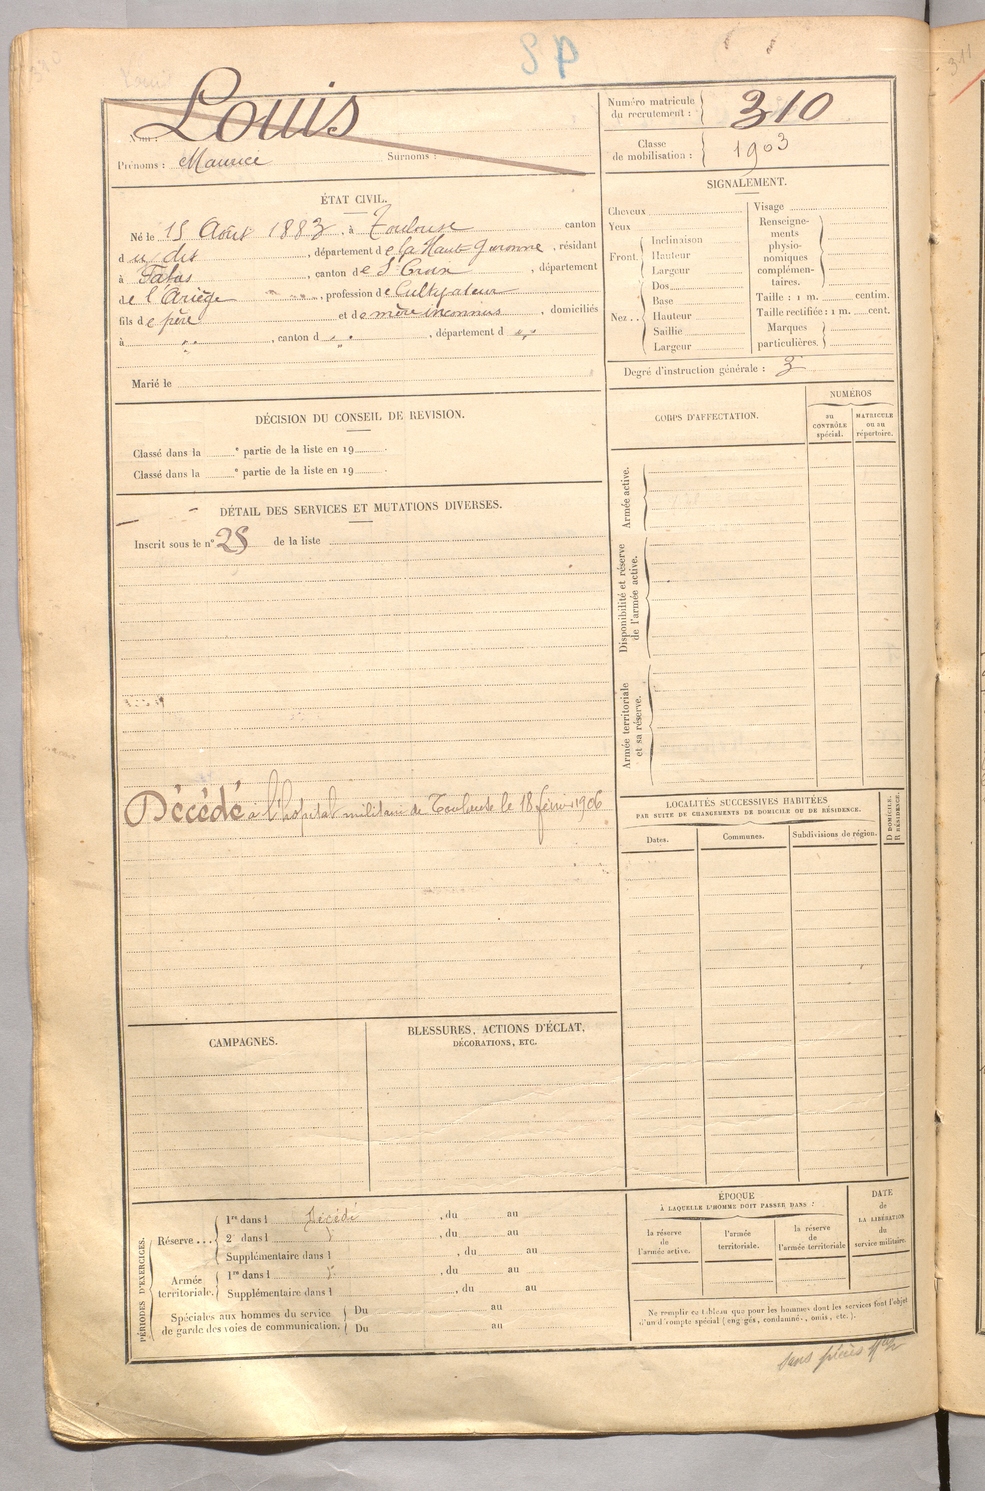 87
Louis
Nom :
Prénoms : Maurice Surnoms :
Numéro matricule du recrutement : 310
Classe de mobilisation : 1903
ÉTAT CIVIL.
Né le 15 Août 1883, à Toulouse canton
du dit, département de la Haute Garonne, résidant
à Fabas, canton de Ste Croix, département
de l'Ariège, profession de Cultivateur
fils de père et de mère inconnus, domiciliés
à " , canton d " , département d "
Marié le
SIGNALEMENT.
Cheveux
Yeux
Front. Inclinaison
Hauteur
Largeur
Nez.. Dos
Base
Hauteur
Saillie
Largeur
Visage
Renseigne-
ments
physio-
nomiques
complémen-
taires.
Taille : 1 m. centim.
Taille rectifiée : 1 m. cent.
Marques
particulières.
Degré d'instruction générale : 3
DÉCISION DU CONSEIL DE REVISION.
Classé dans la e partie de la liste en 19 .
Classé dans la e partie de la liste en 19 .
DÉTAIL DES SERVICES ET MUTATIONS DIVERSES.
Inscrit sous le n° 28 de la liste
Décédé à l'hopital militaire de Toulouse le 18 février 1906
CORPS D'AFFECTATION.
NUMÉROS
au
CONTRÔLE
spécial.
MATRICULE
ou au
répertoire.
Armée active.
Disponibilité et réserve
de l'armée active.
Armée territoriale
et sa réserve.
LOCALITÉS SUCCESSIVES HABITÉES
PAR SUITE DE CHANGEMENTS DE DOMICILE OU DE RÉSIDENCE.
Dates. Communes. Subdivisions de région.
D DOMICILE.
R RÉSIDENCE.
CAMPAGNES.
BLESSURES, ACTIONS D'ÉCLAT,
DÉCORATIONS, ETC.
PÉRIODES D'EXERCICES.
Réserve... 1re dans l Décédé , du au
2e dans l , du au
Supplémentaire dans l , du au
Armée
territoriale. 1re dans l , du au
Supplémentaire dans l , du au
Spéciales aux hommes du service
de garde des voies de communication. Du au
Du au
ÉPOQUE
À LAQUELLE L'HOMME DOIT PASSER DANS :
la réserve
de
l'armée active.
l'armée
territoriale.
la réserve
de
l'armée territoriale
DATE
de
LA LIBÉRATION
du
service militaire.
Ne remplir ce tableau que pour les hommes dont les services font l'objet
d'un décompte spécial (engagés, condamnés, omis, etc.).
sans pièces
311